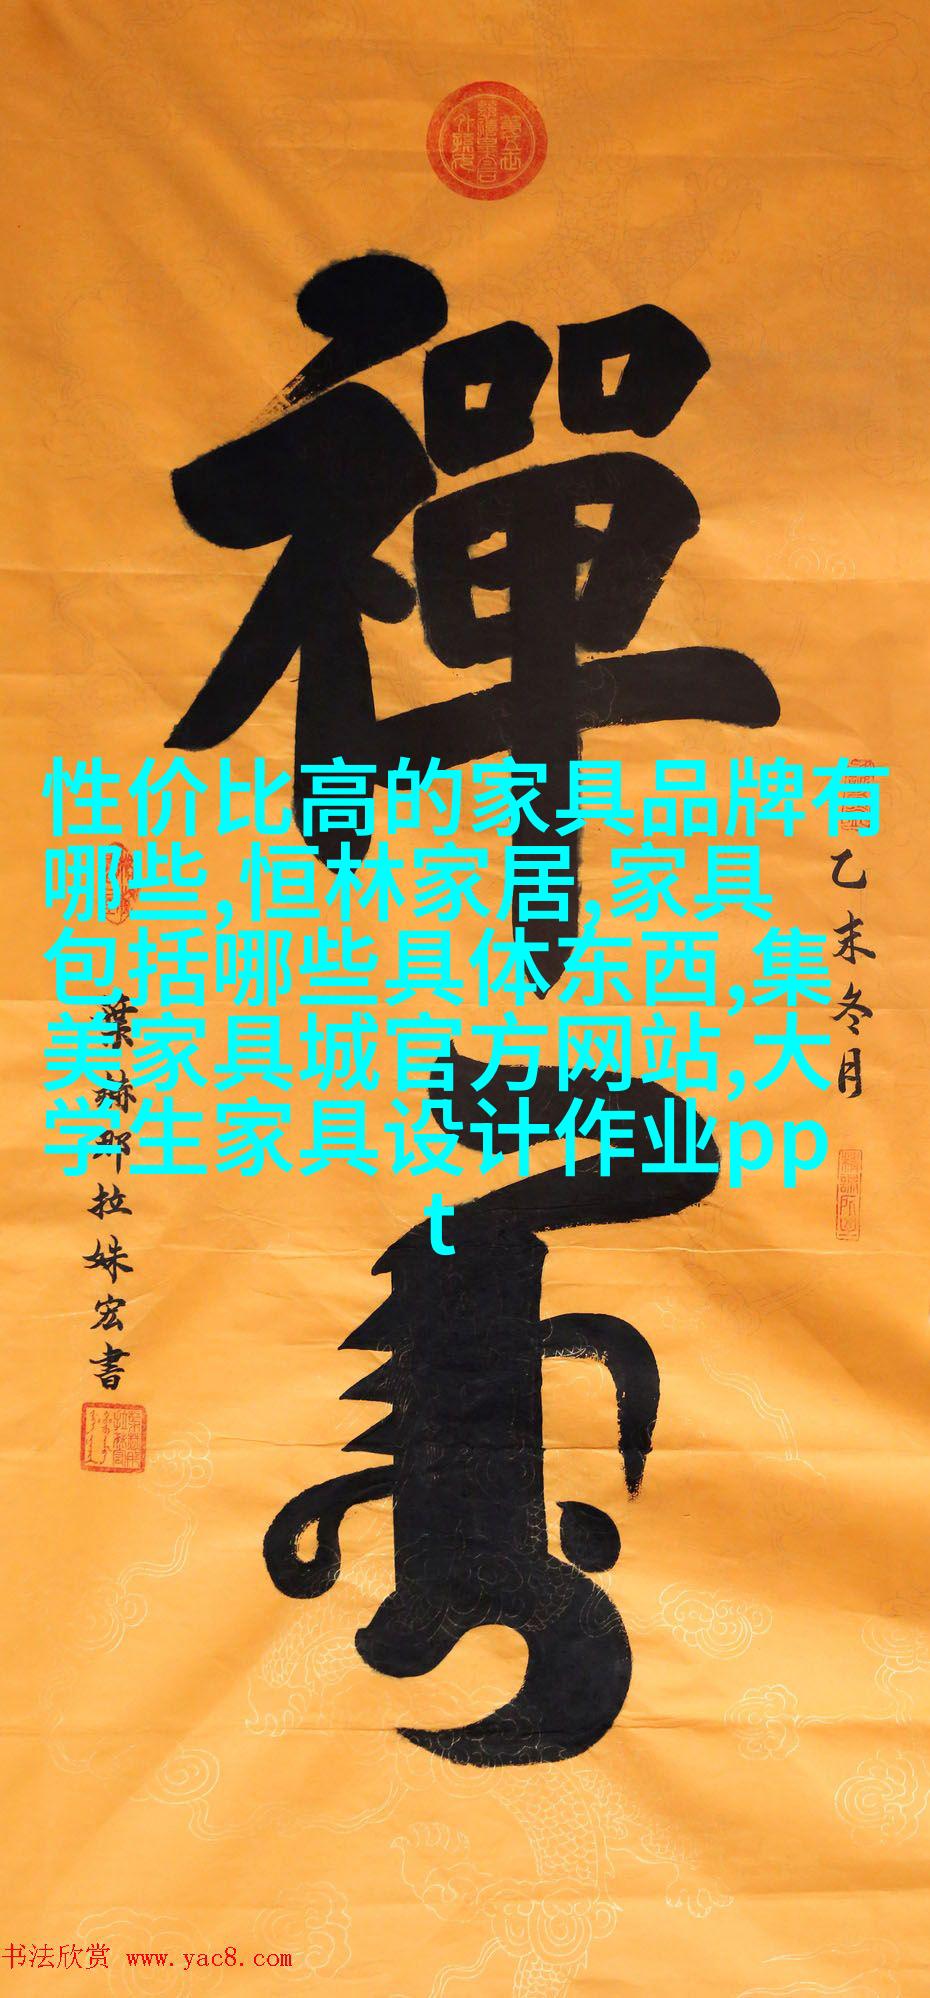 禪
乙未冬月
葉赫那拉姝宏書
性价比高的家具品牌有
哪些,恒林家居,家具
包括哪些具体东西,集
美家具城官方网站,大
学生家具设计作业pp
t
书法欣赏 www.yac8.com